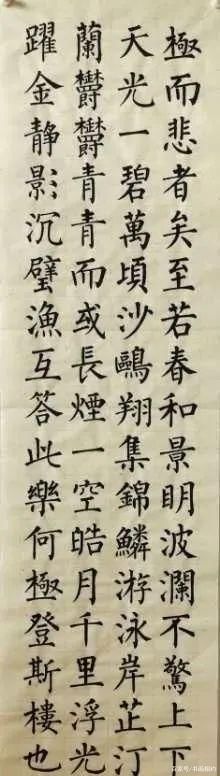 極而悲者矣至若春和景明波瀾不驚上下
天光一碧萬頃沙鷗翔集錦鱗游泳岸芷汀
蘭欝欝青青而或長煙一空皓月千里浮光
躍金靜影沉璧漁互答此樂何極登斯樓也